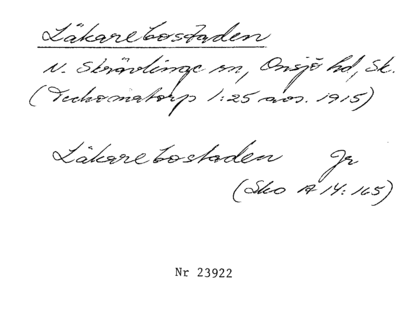 Läkarebostaden
N. Skrävlinge sn, Onsjö hd, Sk.
(Teckomatorp 1:25 avs. 1915)
Läkarebostaden Jr
(Sko A 14:165)
Nr 23922